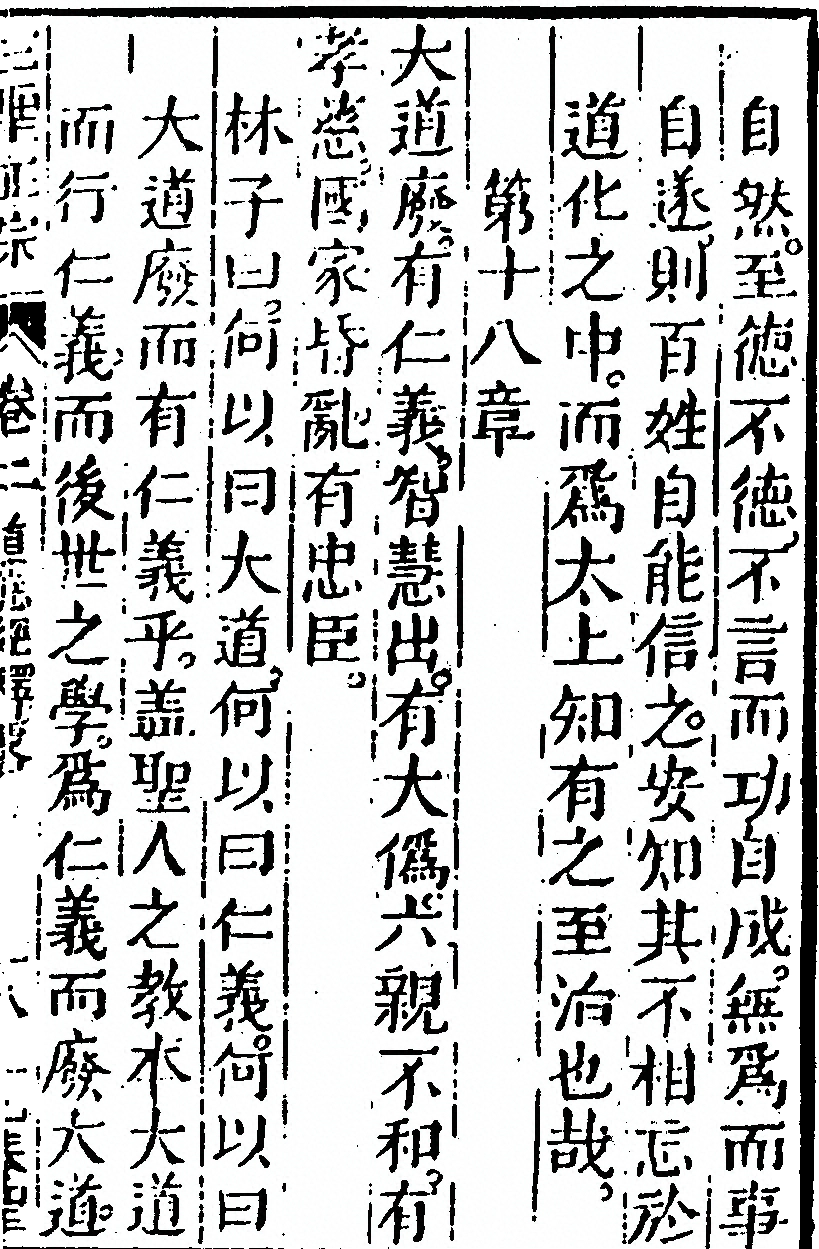 自然。至德不德、不言而功自成。無爲而事
自遂、則百姓自能信之。安知其不相忘於
道化之中。而爲太上知有之至治也哉。
第十八章
大道廢。有仁義。智慧出。有大僞。六親不和、有
孝慈。國家昏亂。有忠臣。
林子曰。何以曰大道、何以曰仁義。何以曰
大道廢而有仁義乎。盖聖人之教本大道
而行仁義、而後世之學。爲仁義而廢大道。
卷二